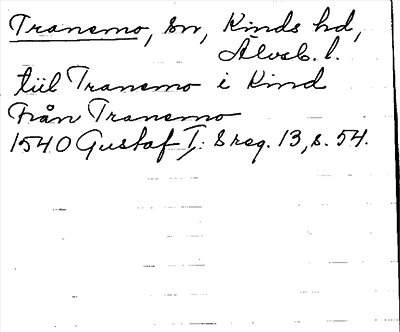 Tranemo, sn, Kinds hd,
Älvsb. l.
tiil Tranemo i Kind
Från Tranemo
1540 Gustaf I: s reg. 13, s. 54.